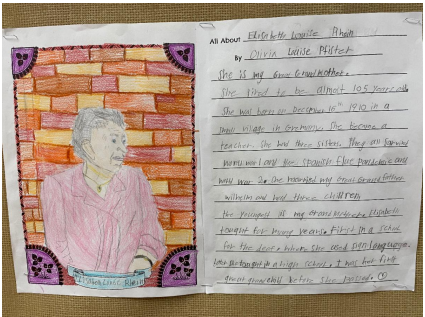 All About Elisabeth Louise Rhein
By Olivia Louise Pfister
She is my Great Grandmother.
She lived to be almost 105 years old
She was born on December 16th 1910 in a
small village in Germany. She became a
teacher. She had three sisters. They all survived
world war 1 and the Spanish Flue pandemic and
world war 2. She married my Great Grand father
Wilhelm and had three children,
the youngest is my Grandmother. Elisabeth
tought for many years. First in a school
for the deaf. Where she used sign language.
Later she tought in a high school. I was her first
great grandchild before she passed.
Louise Rhein